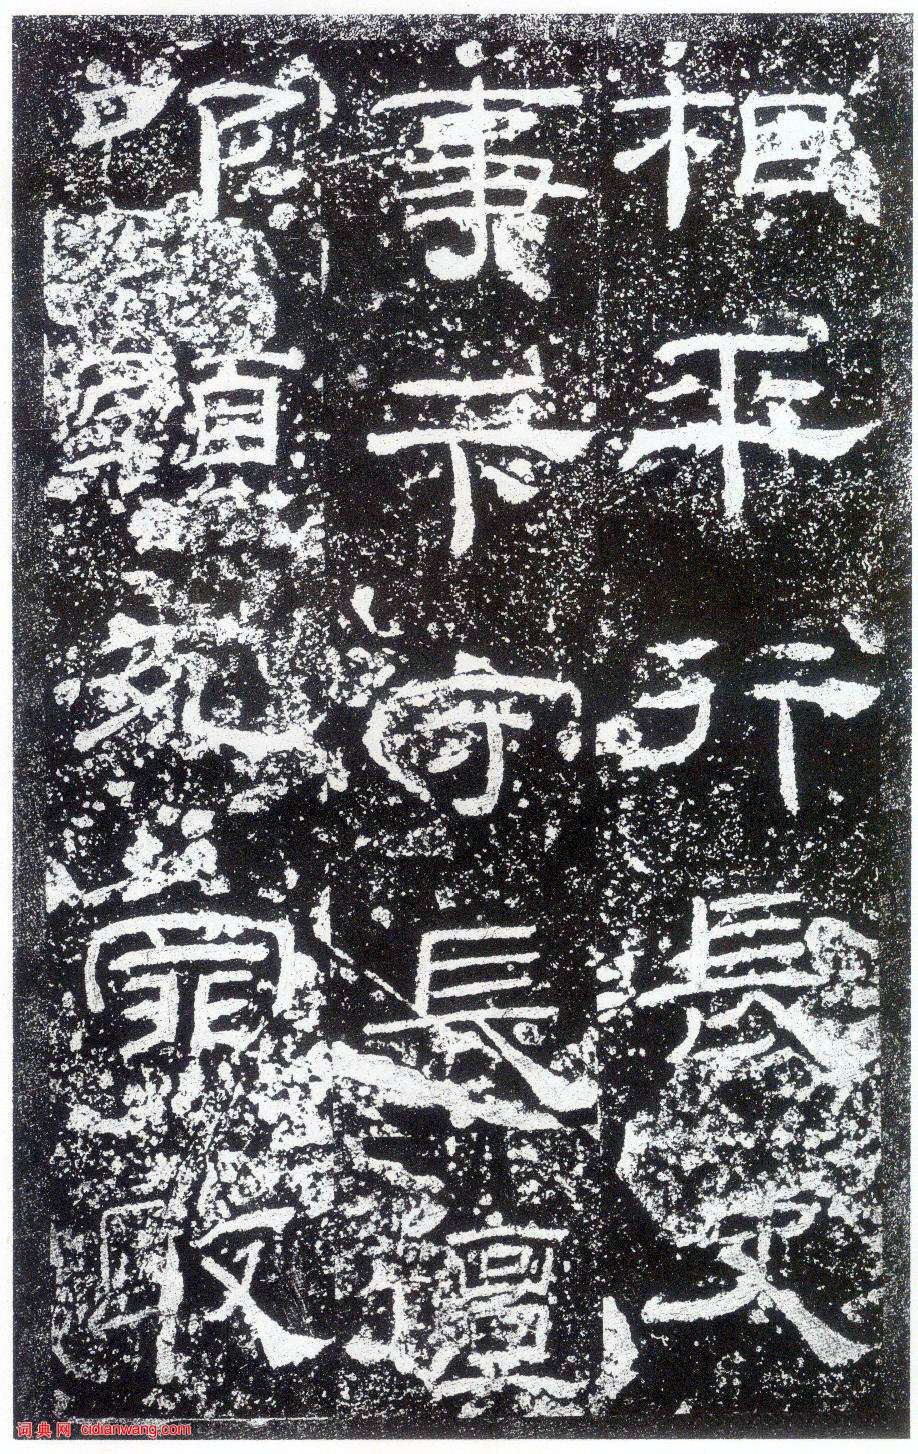 相平行長史
事卞守長擅
叩頭死罪敢
词典网 cidianwang.com